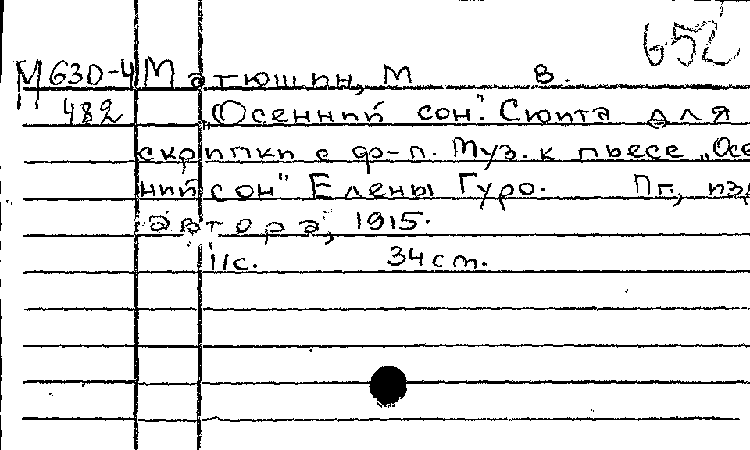 652
М 630-4 Матюшин, М В.
482 „Осенний сон". Сюита для
скрипки с ф-п. Муз. к пьесе „Осе
ний сон" Елены Гуро. Пг, изд
автора, 1915.
11с. 34 см.